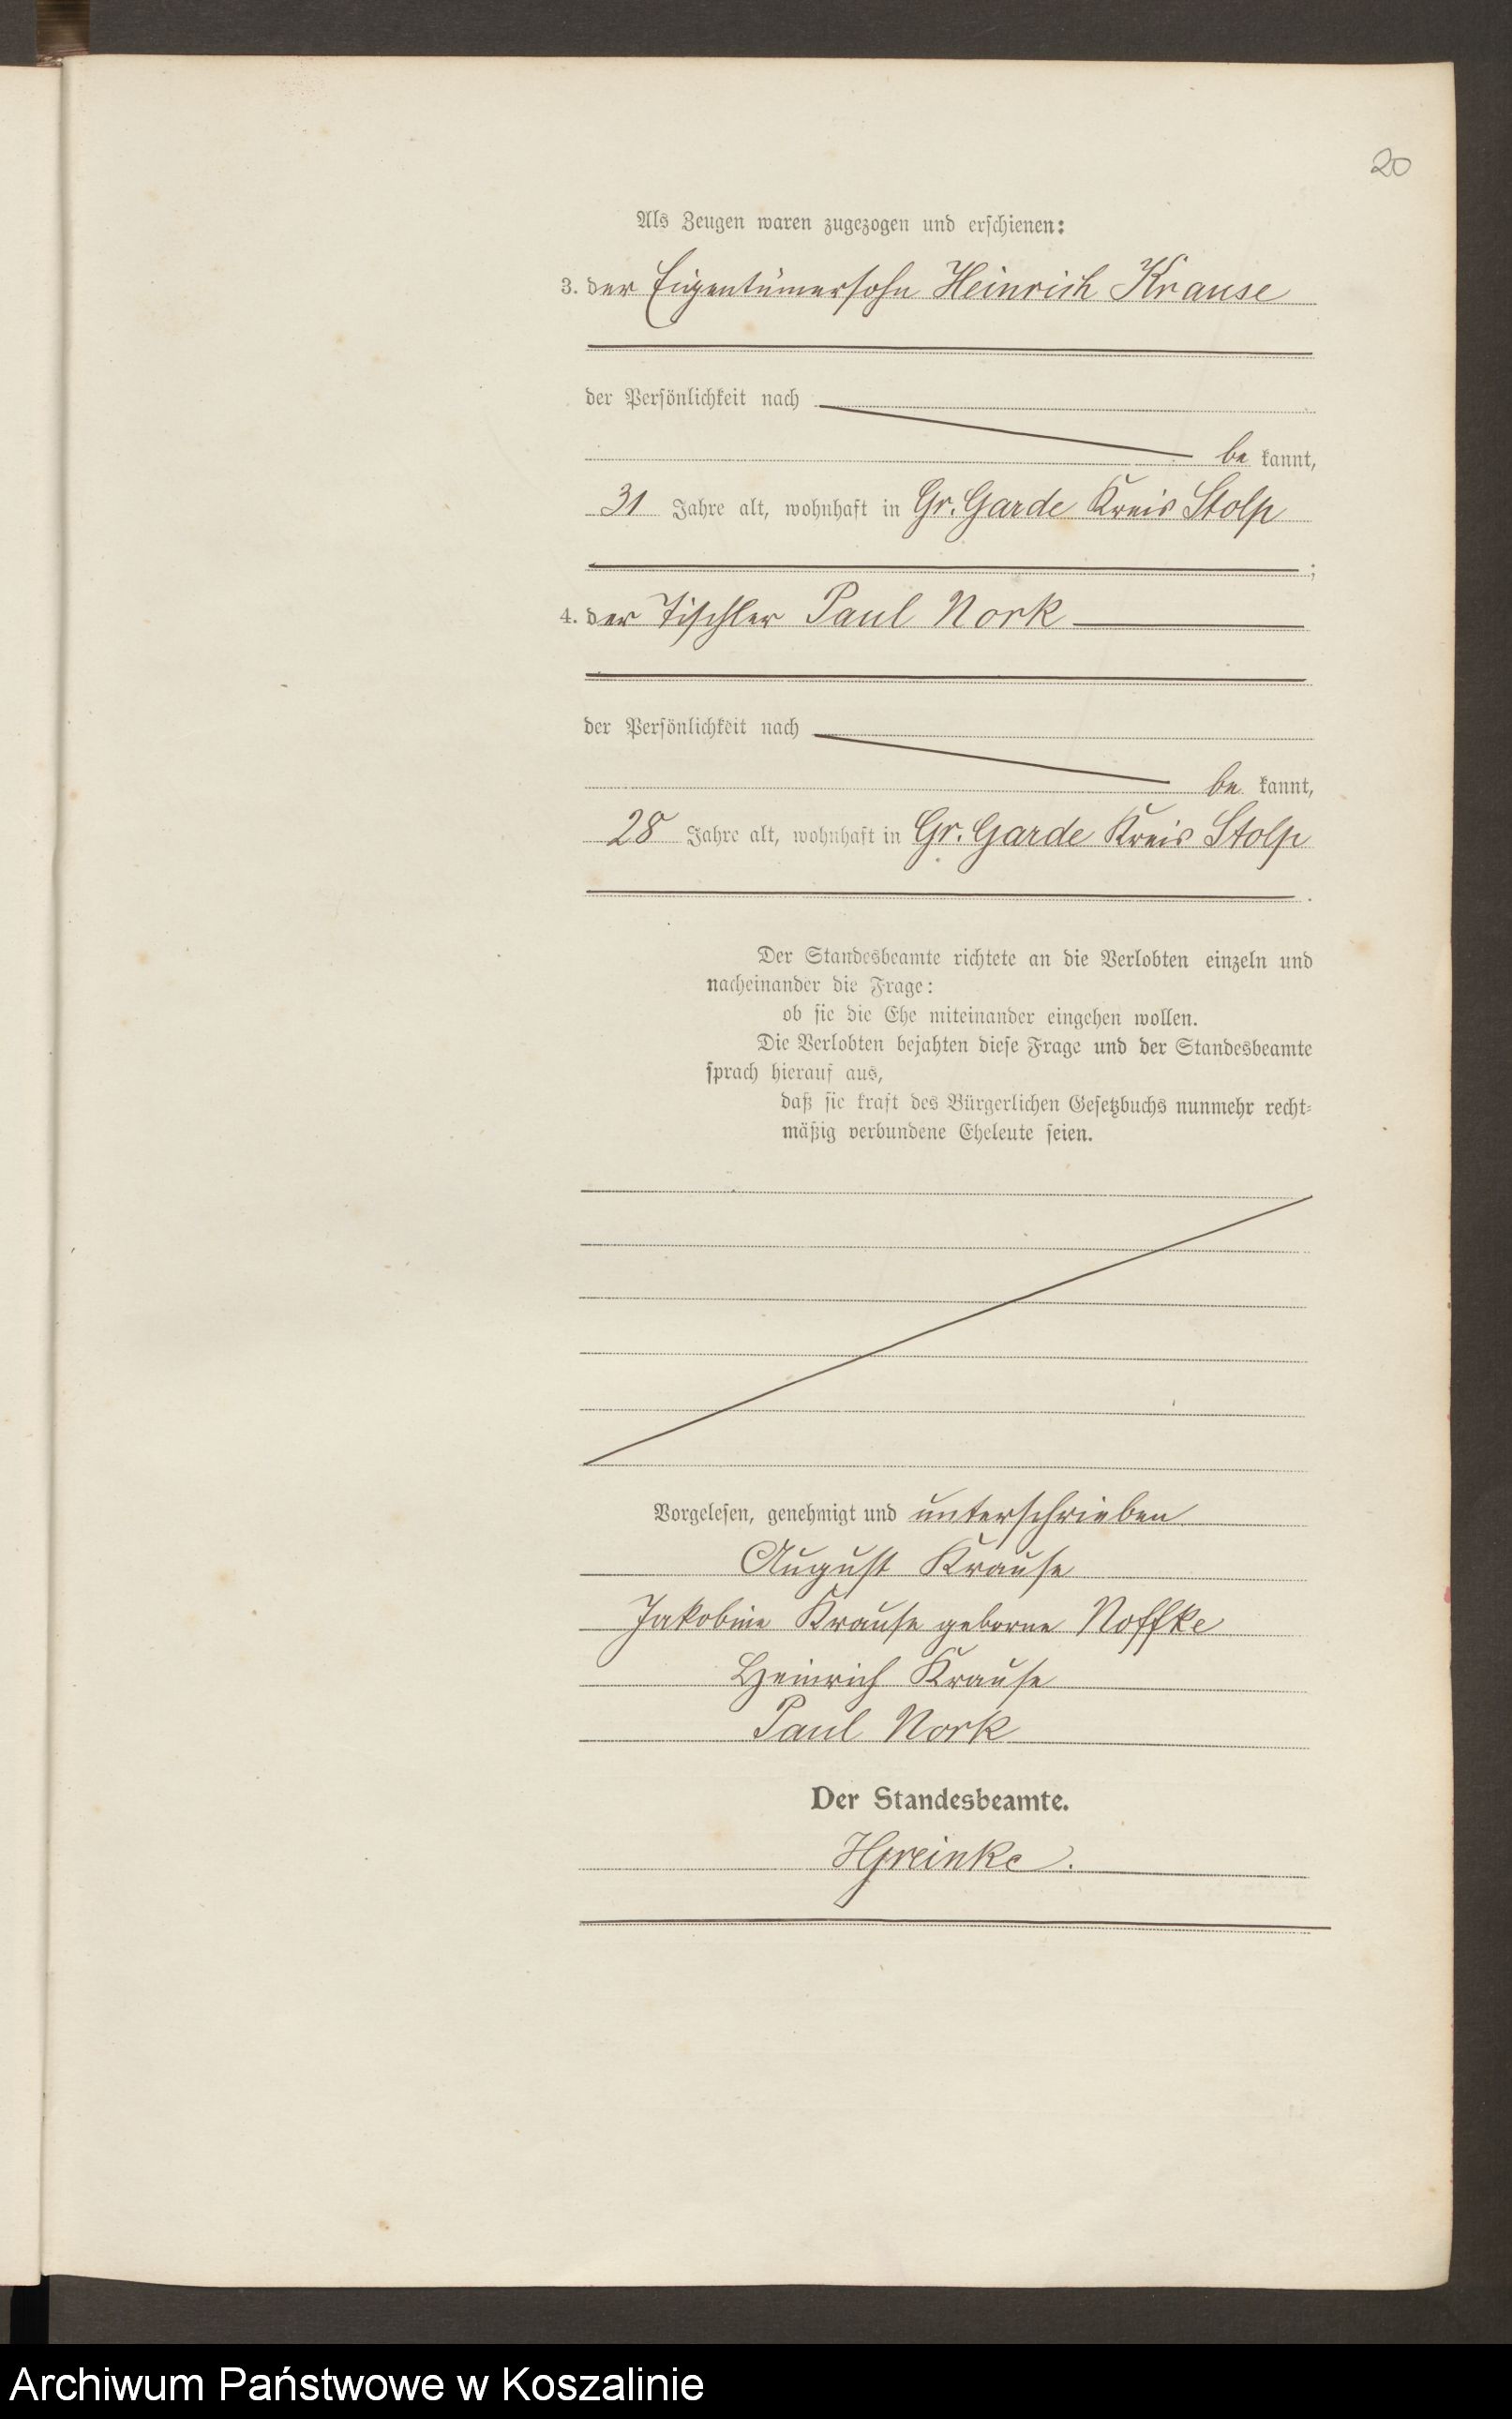 20
Als Zeugen waren zugezogen und erschienen:
3. der Eigentümersohn Heinrich Krause
der Persönlichkeit nach
be kannt,
31 Jahre alt, wohnhaft in Gr. Garde Kreis Stolp
;
4. der Tischler Paul Nork
der Persönlichkeit nach
be kannt,
28 Jahre alt, wohnhaft in Gr. Garde Kreis Stolp
.
Der Standesbeamte richtete an die Verlobten einzeln und
nacheinander die Frage:
ob sie die Ehe miteinander eingehen wollen.
Die Verlobten bejahten diese Frage und der Standesbeamte
sprach hierauf aus,
daß sie kraft des Bürgerlichen Gesetzbuchs nunmehr recht-
mäßig verbundene Eheleute seien.
Vorgelesen, genehmigt und unterschrieben
August Krause
Jakobine Krause geborne Noffke
Heinrich Krause
Paul Nork
Der Standesbeamte.
HGreinke.
Archiwum Państwowe w Koszalinie